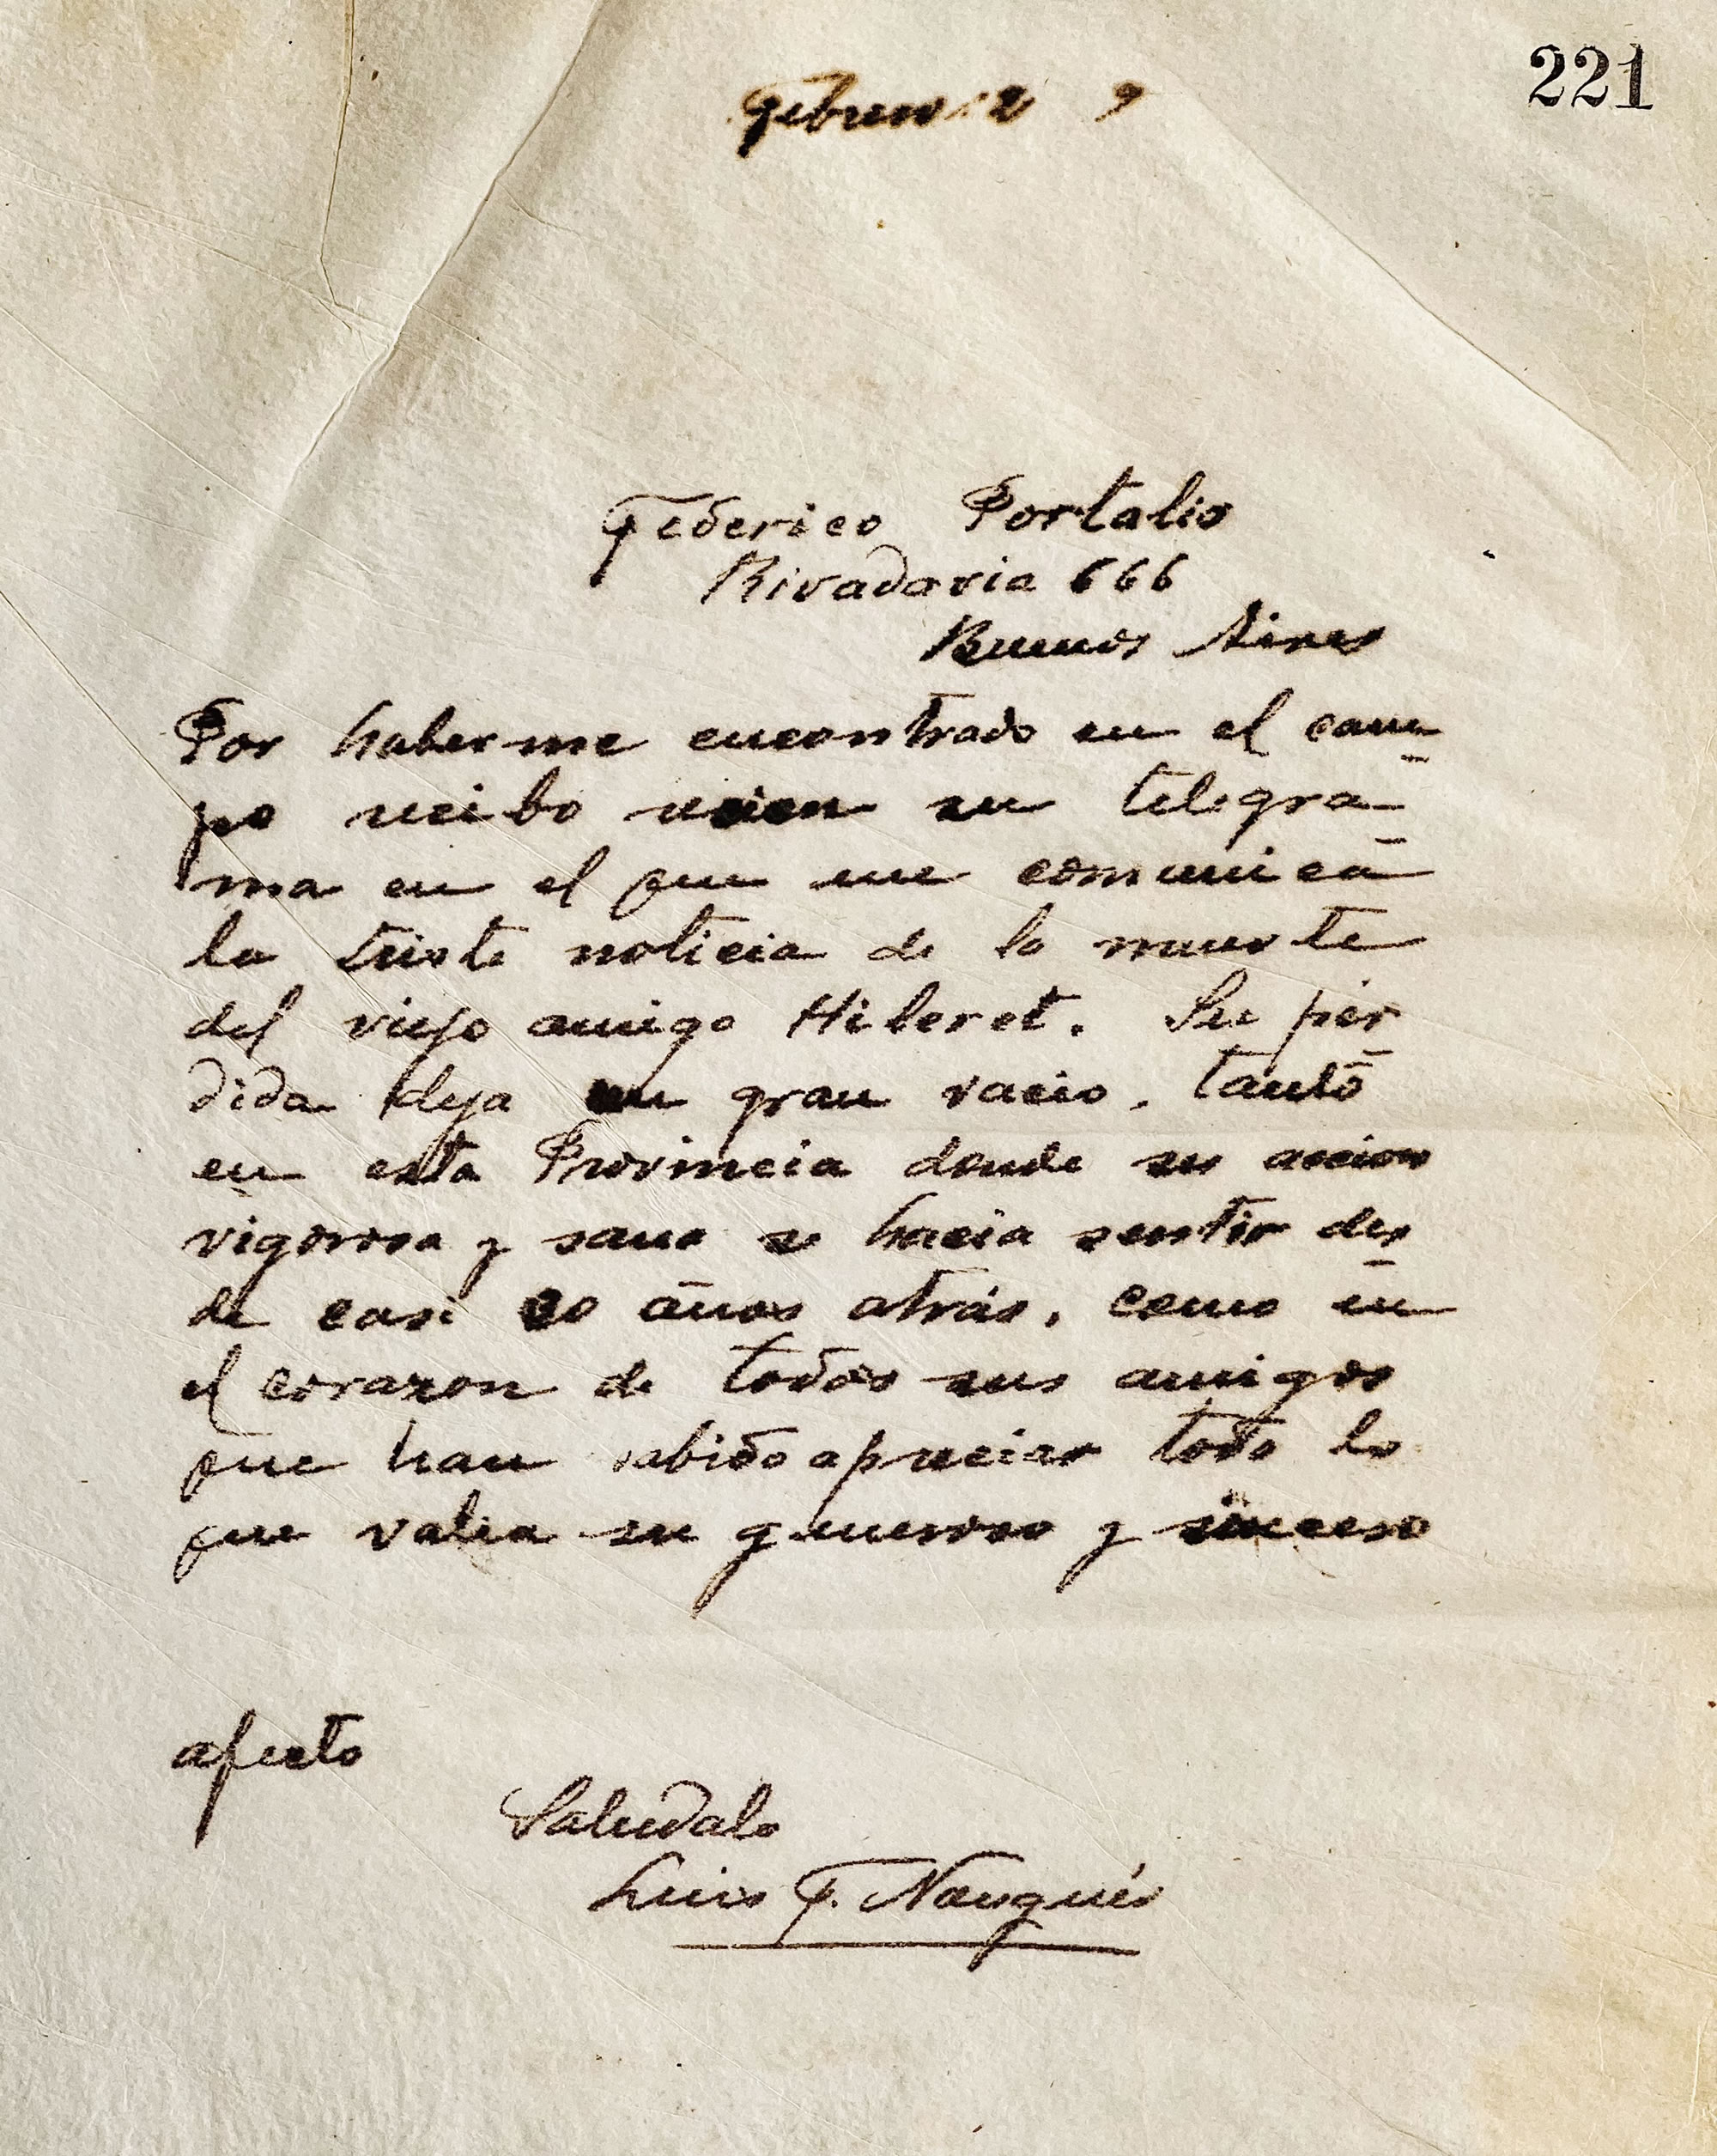 221
Febrero 2 9
Federico Portalis
Rivadavia 666
Buenos Aires
Por haberme encontrado en el cam-
po recibo recien su telegra-
ma en el que me comunica
la triste noticia de la muerte
del viejo amigo Hileret. Su pér-
dida deja un gran vacio, tanto
en esta Provincia donde su accion
vigorosa y sana se hacia sentir des-
de casi 30 años atrás, como en
el corazon de todos sus amigos
que han sabido apreciar todo lo
que valia su generoso y sincero
afecto
Saludalo
Luis F. Nougués